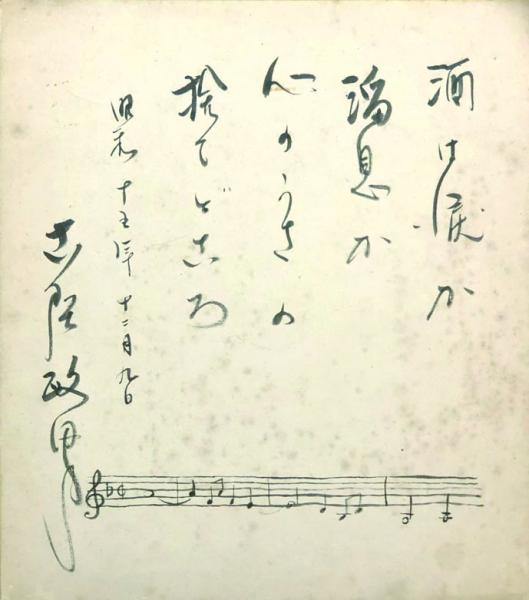 酒は涙か
溜息か
心のうさの
捨てどころ
昭和十五年十二月九日
古賀政男